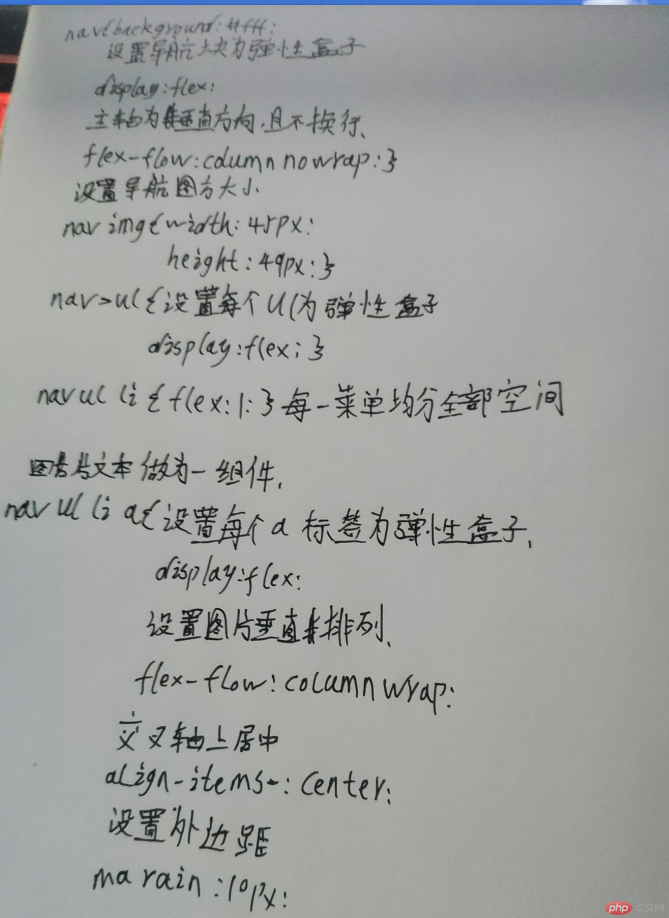 nav{background:#fff:
设置导航块为弹性盒子
display:flex:
主轴为垂直方向,且不换行、
flex-flow:column nowrap:}
设置导航图片大小
nav img{width:45px:
height:49px:}
nav>ul{设置每个ul为弹性盒子
display:flex;}
nav ul li{flex:1:}每一菜单均分全部空间
图片与文本做为一组件,
nav ul li a{设置每个a标签为弹性盒子,
display:flex:
设置图片垂直排列、
flex-flow:column wrap:
交叉轴上居中
align-items-:center:
设置外边距
marain:10px:
php中文网